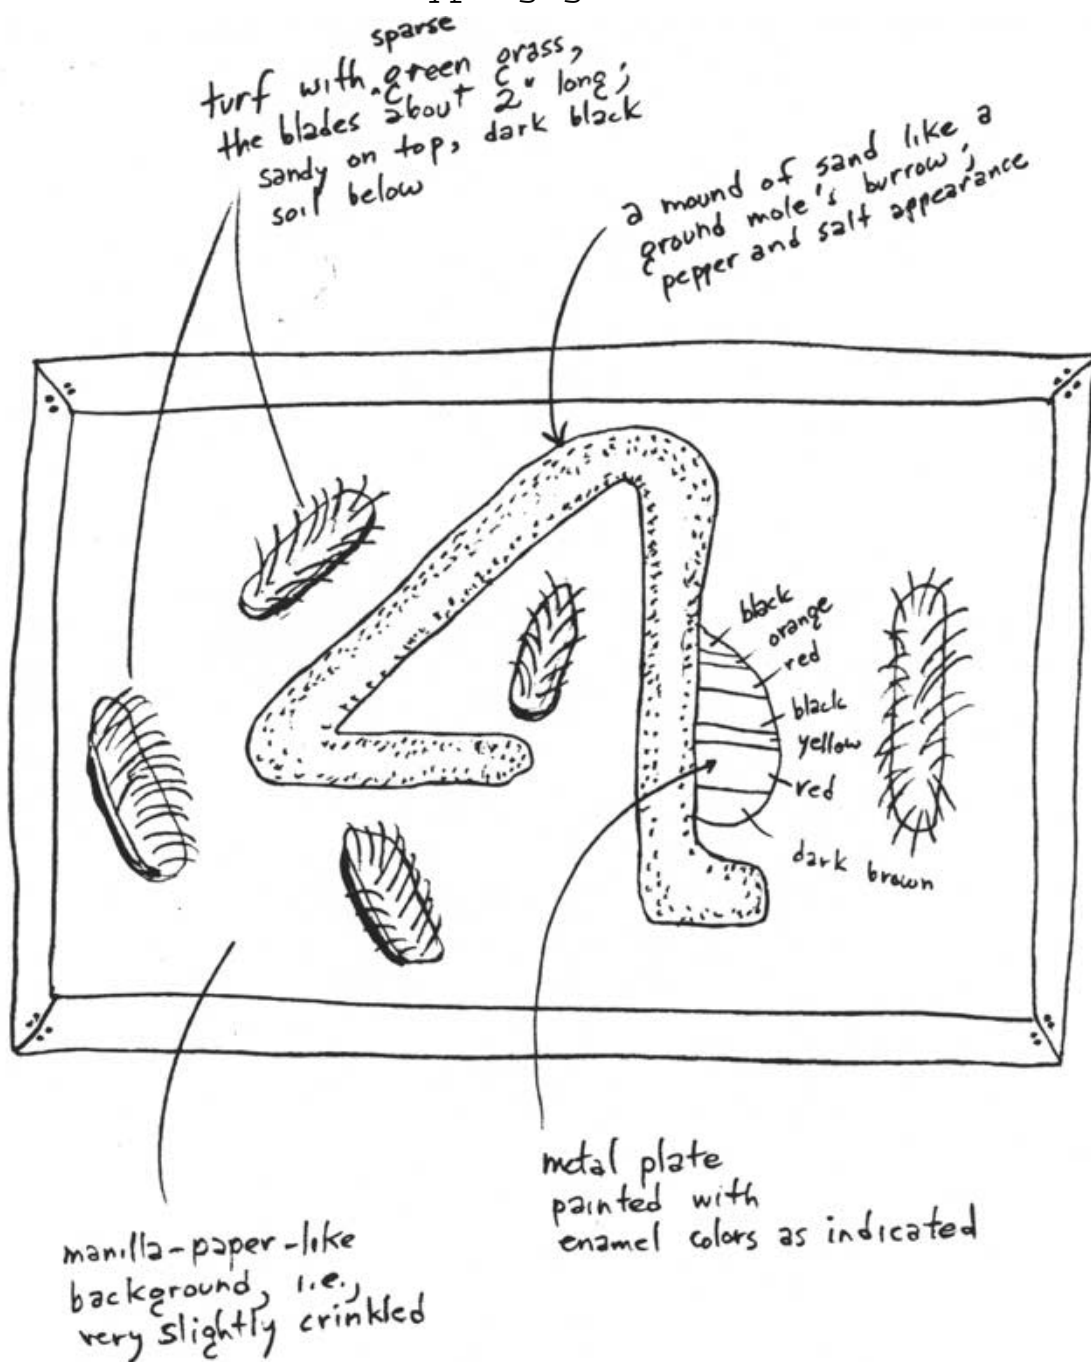 sparse
turf with green grass,
the blades about 2" long;
sandy on top, dark black
soil below
a mound of sand like a
ground mole's burrow;
pepper and salt appearance
black
orange
red
black
yellow
red
dark brown
metal plate
painted with
enamel colors as indicated
manilla-paper-like
background, i.e.,
very slightly crinkled